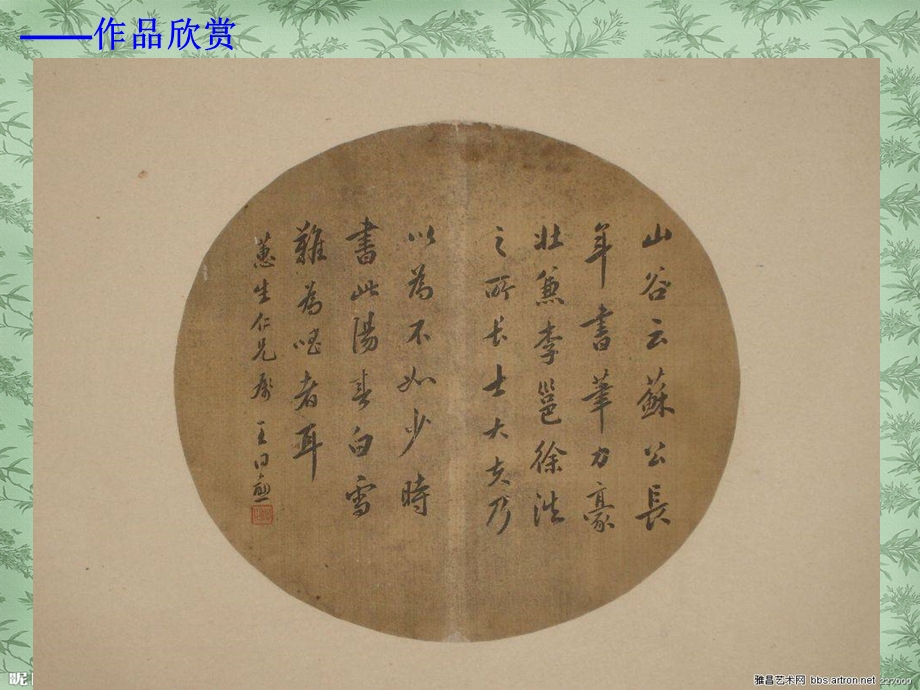 ——作品欣赏
山谷云蘇公長
年書筆力豪
壯兼李邕徐浩
之所长士大夫乃
以為不如少時
書此陽春白雪
難為唱者耳
蕙生仁兄屬 王同愈
雅昌艺术网 bbs.artron.net